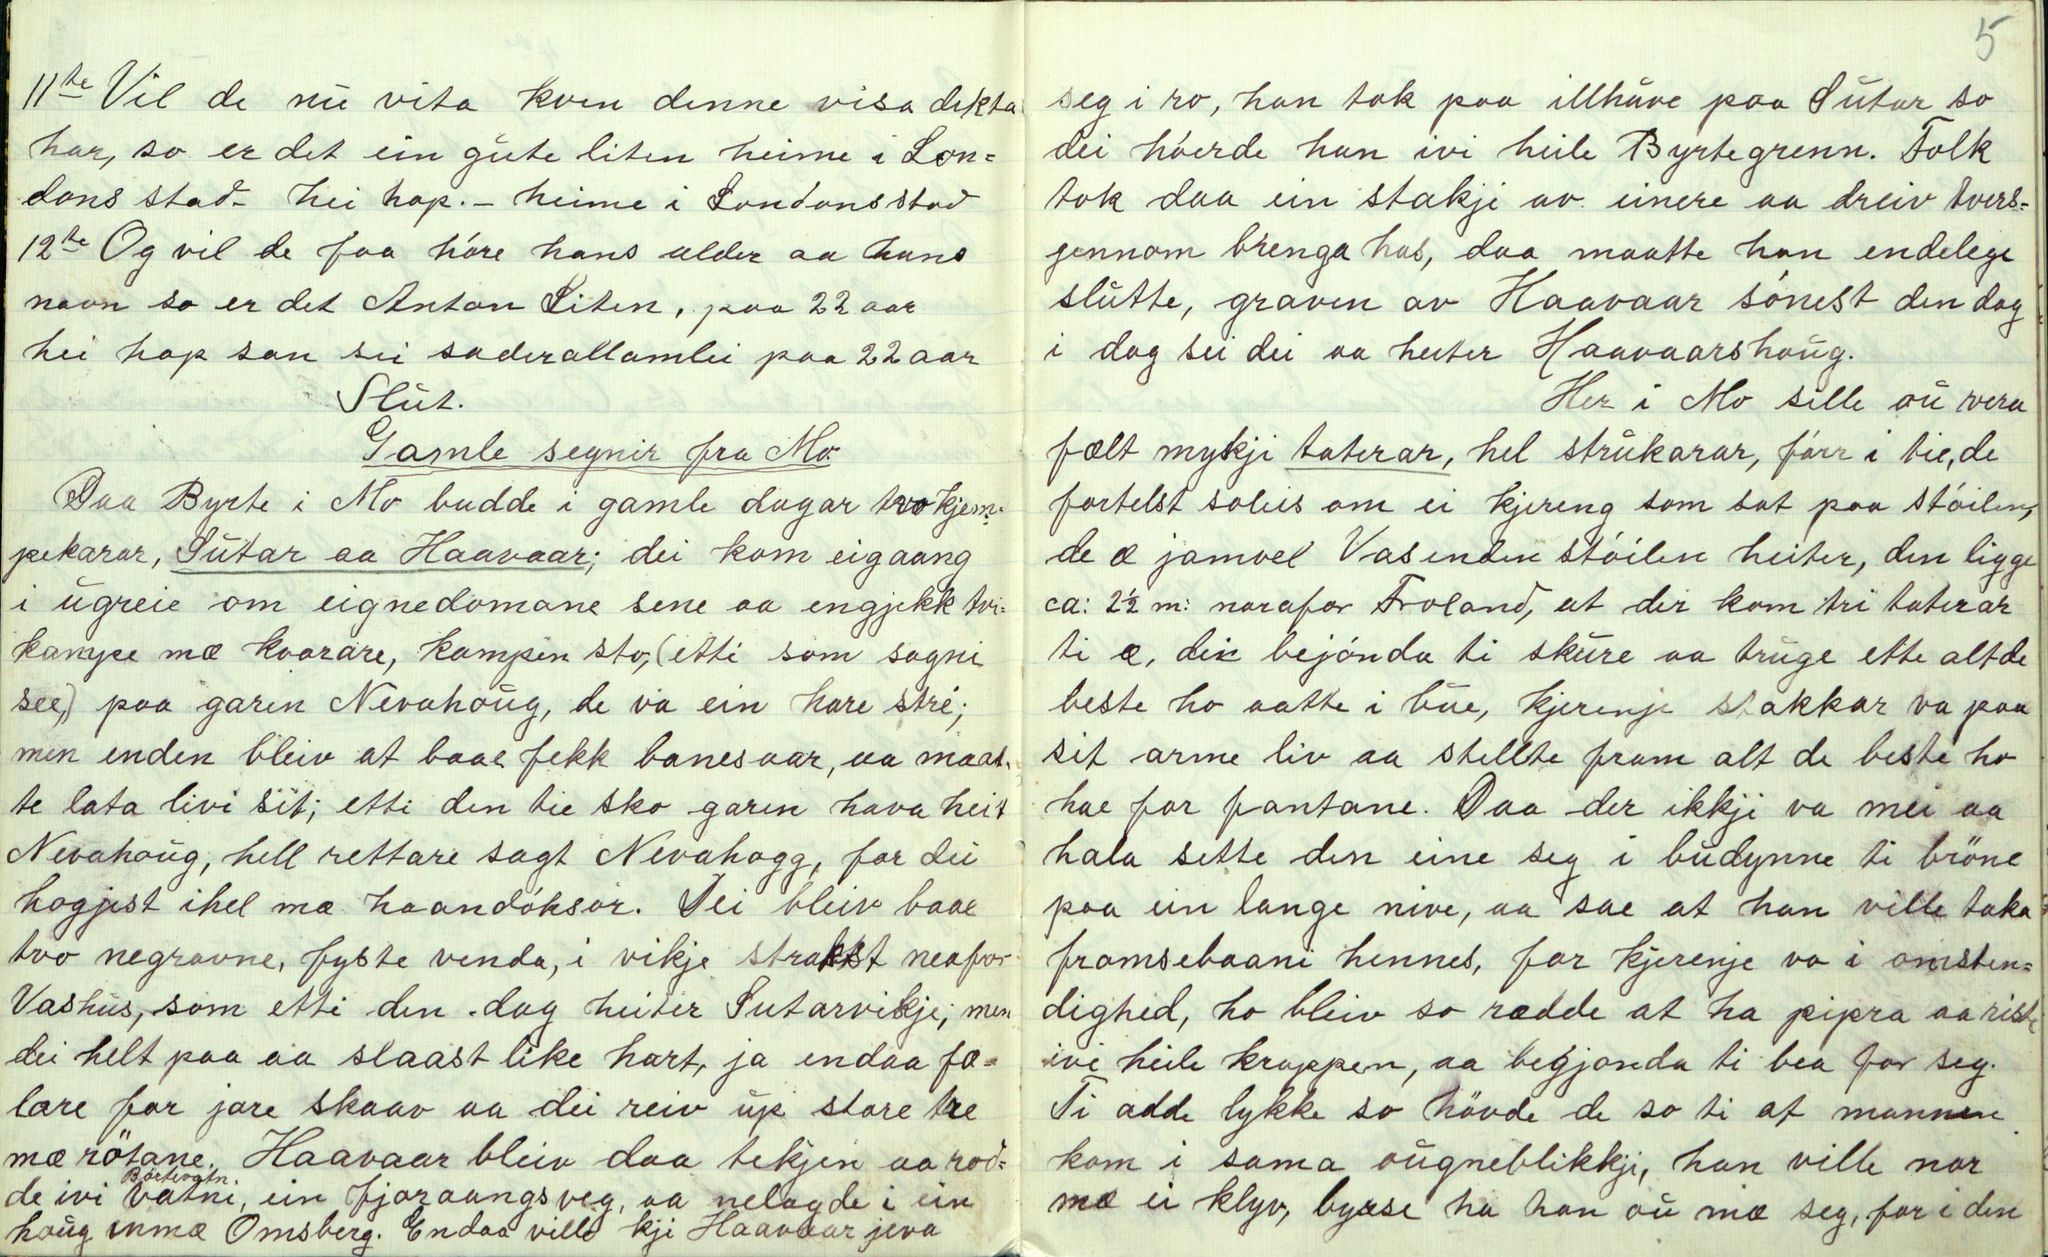 11te Vil de nü vita kven denne visa dikta
har, so er det ein güte liten heime i Lon=
dons stad - hei hop. - heime i Londonsstad
12te Og vil de faa hóre hans alder aa hans
navn so er det Anton Liten, paa 22 aar
hei hop san sei saderallamlei paa 22 aar
Slüt.
Gamle segnir fra Mo.
Paa Byrte i Mo budde i gamle dagar tvo kjem=
pekarar, Sütar aa Haavaar; dei kom eigaang
i ügreie om eignedomane sene aa engjekk tvi=
kampe mæ kvorare, kampen sto, (etti som sogni
see,) paa garen Nevahoüg, de va ein hare stré;
men enden bleiv at baae fekk banesaar, aa maat=
te lata livi sit; etti den tie sko garen hava heit
Nevahoüg, hell rettare sagt Nevahogg, for dei
hogjist ihel mæ haandóksar. Dei bleiv baae
tvo negravne, fyste venda, i vikje strakst neafor
Vashüs, som etti den dag heiter Sutarvikje; men
dei helt paa aa slaast like hart, ja endaa fæ=
lare for jore skaav aa dei reiv üp store tre
mæ rötane. Haavaar bleiv daa tekjen aa rod=
de ivi Börtevatn. vatni, ein fjoraangsveg, aa nelagde i ein
houg inmæ Omsberg. Endaa ville kji Haavaar jeva
5
seg i ro, han tok paa illhüve paa Sütar so
dei hóerde han ivi heile Byrtegrenn. Folk
tok daa ein stakji av einere aa dreiv tvers=
gennom brenga has, daa maatte han endelege
slütte, graven av Haavaar sónest den dag
i dag sei dei aa heiter Haavaarshoüg.
Her i Mo sille oü vera
fælt mykji taterar, hel strükarar, fórr i tie, de
fortelst soleis om ei kjereng som sat paa stóilen,
de æ jamvel Vasenden stóilen heiter, den ligge
ca: 2½ m: norafor Froland, at der kom tri taterar
ti æ, dei bejónda ti sküre aa trüge ette alt de
beste ho aatte i büe, kjerenje stakkar va paa
sit arme liv aa stellte fram alt de beste ho
hae for fantane. Daa der ikkji va mei aa
hala sette den eine seg i büdynne ti bröne
paa ein lange nive, aa sae at han ville taka
framsebaani hennes, for kjerenje va i omsten=
dighed, ho bleiv so rædde at ha pipra aa riste
ivi heile kroppen, aa begjonda ti bea for seg.
Ti adde lykke so hövde de so ti at mannen
kom i sama oügneblikkji, han ville nor
mæ ei klyv, byrse ha han oü mæ seg, for i den